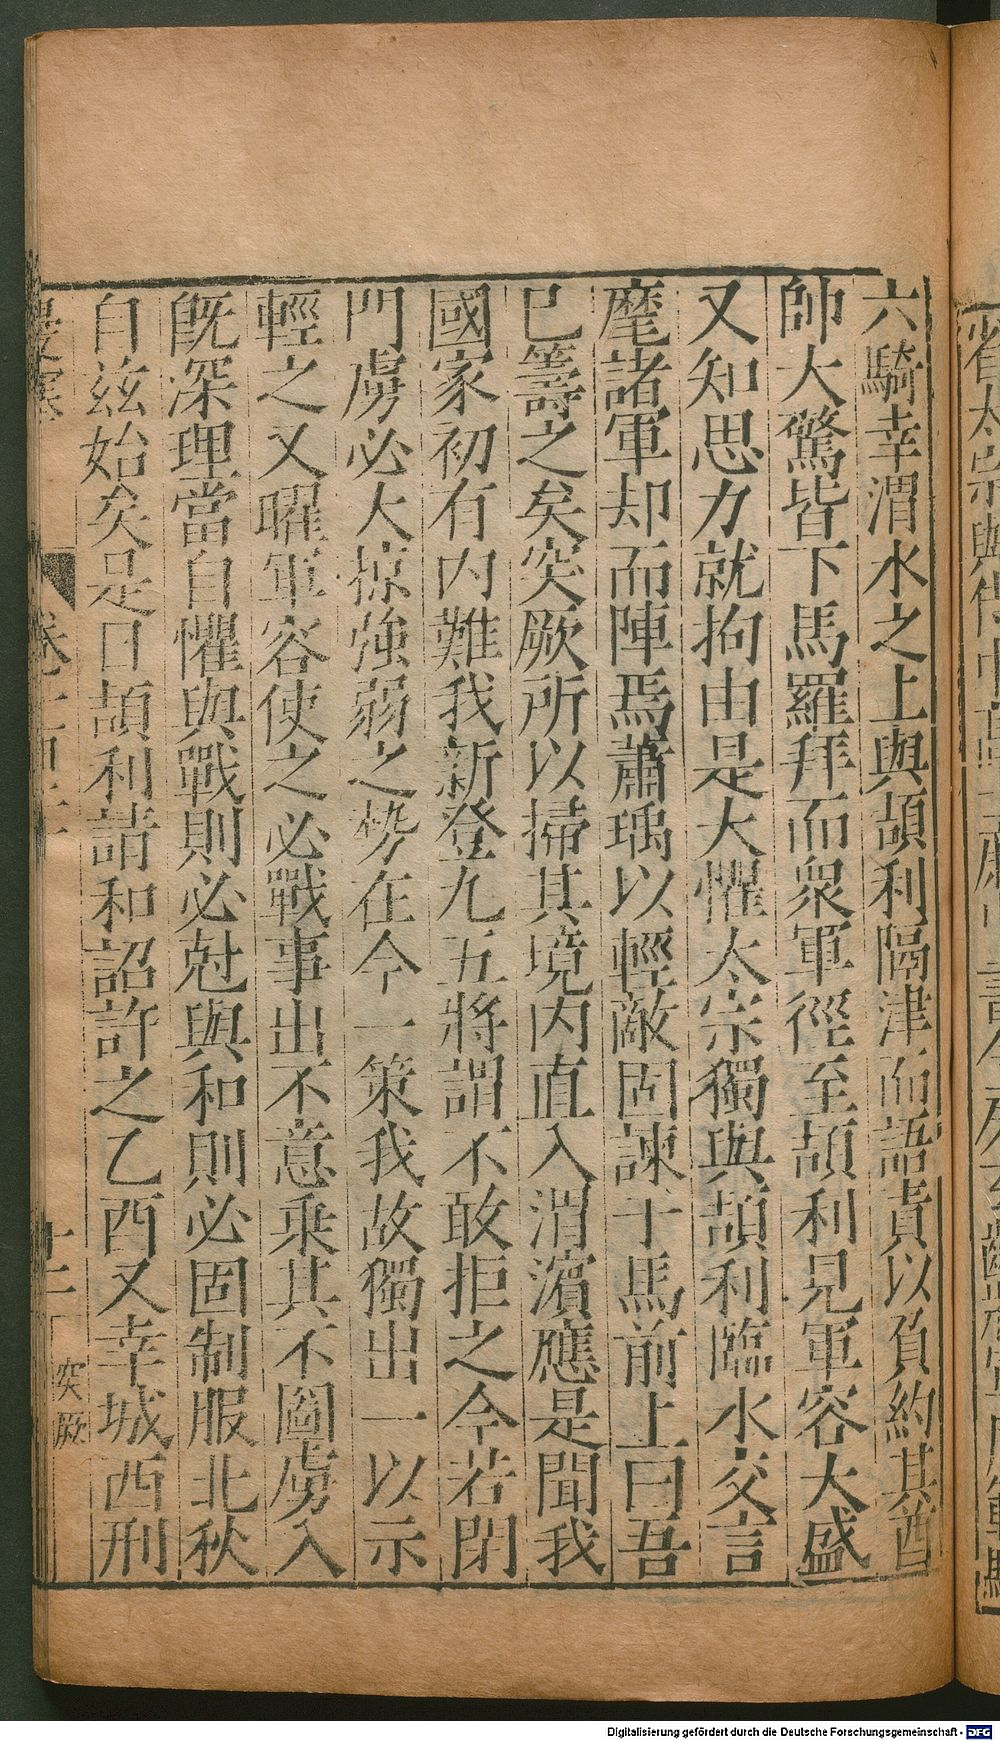 六騎幸渭水之上與頡利隔津而語責以負約其酋
帥大驚皆下馬羅拜而衆軍徑至頡利見軍容大盛
又知思力就拘由是大懼太宗獨與頡利臨水交言
麾諸軍却而陣焉蕭瑀以輕敵固諫于馬前上曰吾
已籌之矣突厥所以掃其境内直入渭濱應是聞我
國家初有内難我新登九五將謂不敢拒之今若閉
門虜必大掠強弱之勢在今一策我故獨出一以示
輕之又曜軍容使之必戰事出不意乘其不圖虜入
既深理當自懼與戰則必尅與和則必固制服北狄
自茲始矣是日頡利請和詔許之乙酉又幸城西刑
突厥
Digitalisierung gefördert durch die Deutsche Forschungsgemeinschaft - DFG